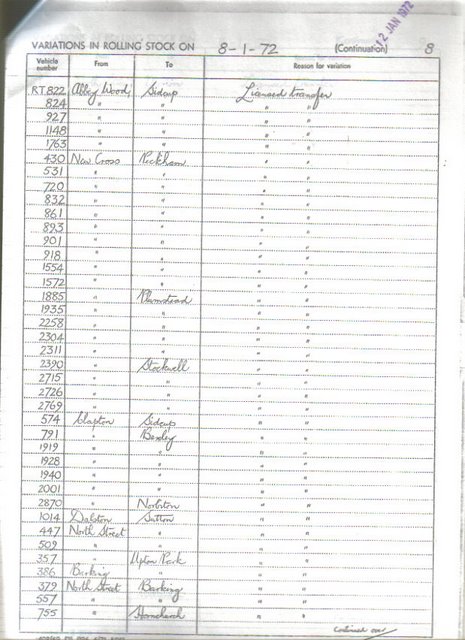 12 JAN 1972
VARIATIONS IN ROLLING STOCK ON 8-1-72 (Continuation) 8
Vehicle number From To Reason for variation
RT 822 Abbey Wood Sidcup Licensed transfer
824 " " " "
927 " " " "
1148 " " " "
1763 " " " "
430 New Cross Peckham " "
531 " " " "
720 " " " "
832 " " " "
861 " " " "
893 " " " "
901 " " " "
918 " " " "
1554 " " " "
1572 " " " "
1885 " Plumstead " "
1935 " " " "
2258 " " " "
2304 " " " "
2311 " " " "
2390 " Stockwell " "
2715 " " " "
2726 " " " "
2769 " " " "
574 Clapton Sidcup " "
791 " Bexley " "
1919 " " " "
1928 " " " "
1940 " " " "
2001 " " " "
2870 " Norbiton " "
1014 Dalston Sutton " "
447 North Street " " "
509 " " " "
357 " Upton Park " "
386 Barking " " "
379 North Street Barking " "
557 " " " "
755 " Hornchurch " "
Continued over